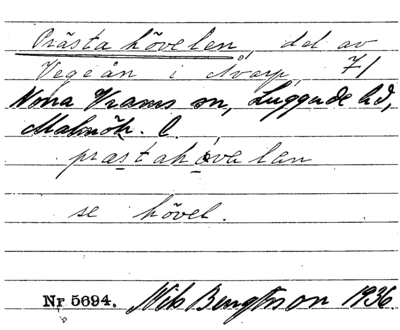 Prästahövelen, del av
Vegeån i Svarp, 71
Norra Vrams sn, Luggude hd,
Malmöh. l.
prastahövelen
se hövel.
Nr 5694. Nils Bengtsson 1936.